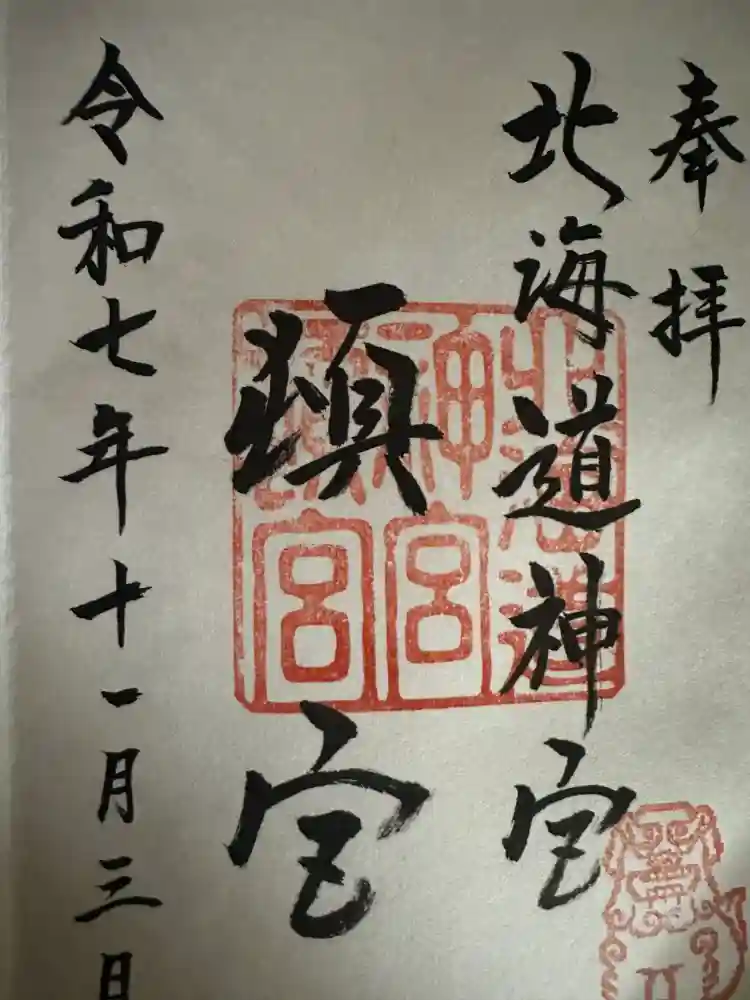 奉拝
北海道神宮
頓宮
令和七年十一月三日
北海道
神宮
頓宮